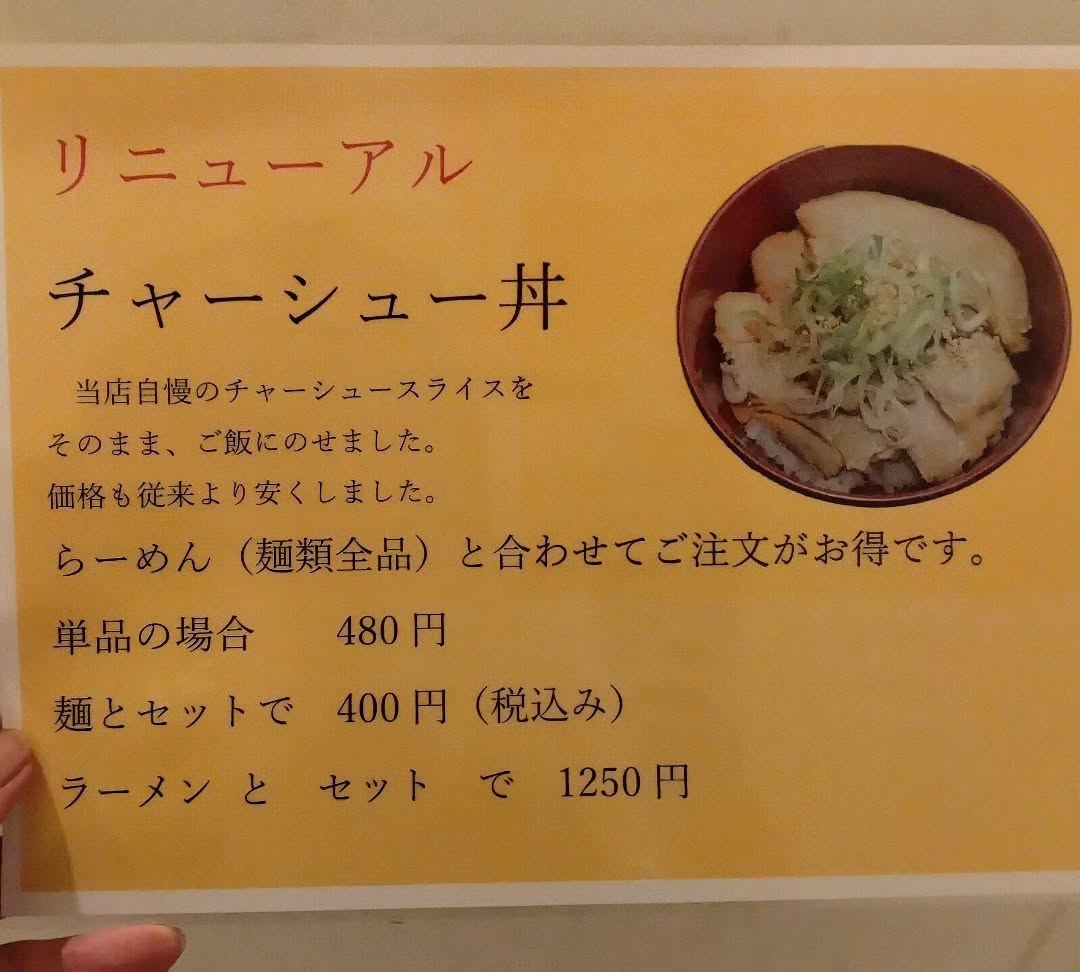 リニューアル
チャーシュー丼
当店自慢のチャーシュースライスを
そのまま、ご飯にのせました。
価格も従来より安くしました。
らーめん（麺類全品）と合わせてご注文がお得です。
単品の場合　　480 円
麺とセットで　400 円（税込み）
ラーメン と　セット　で　1250 円